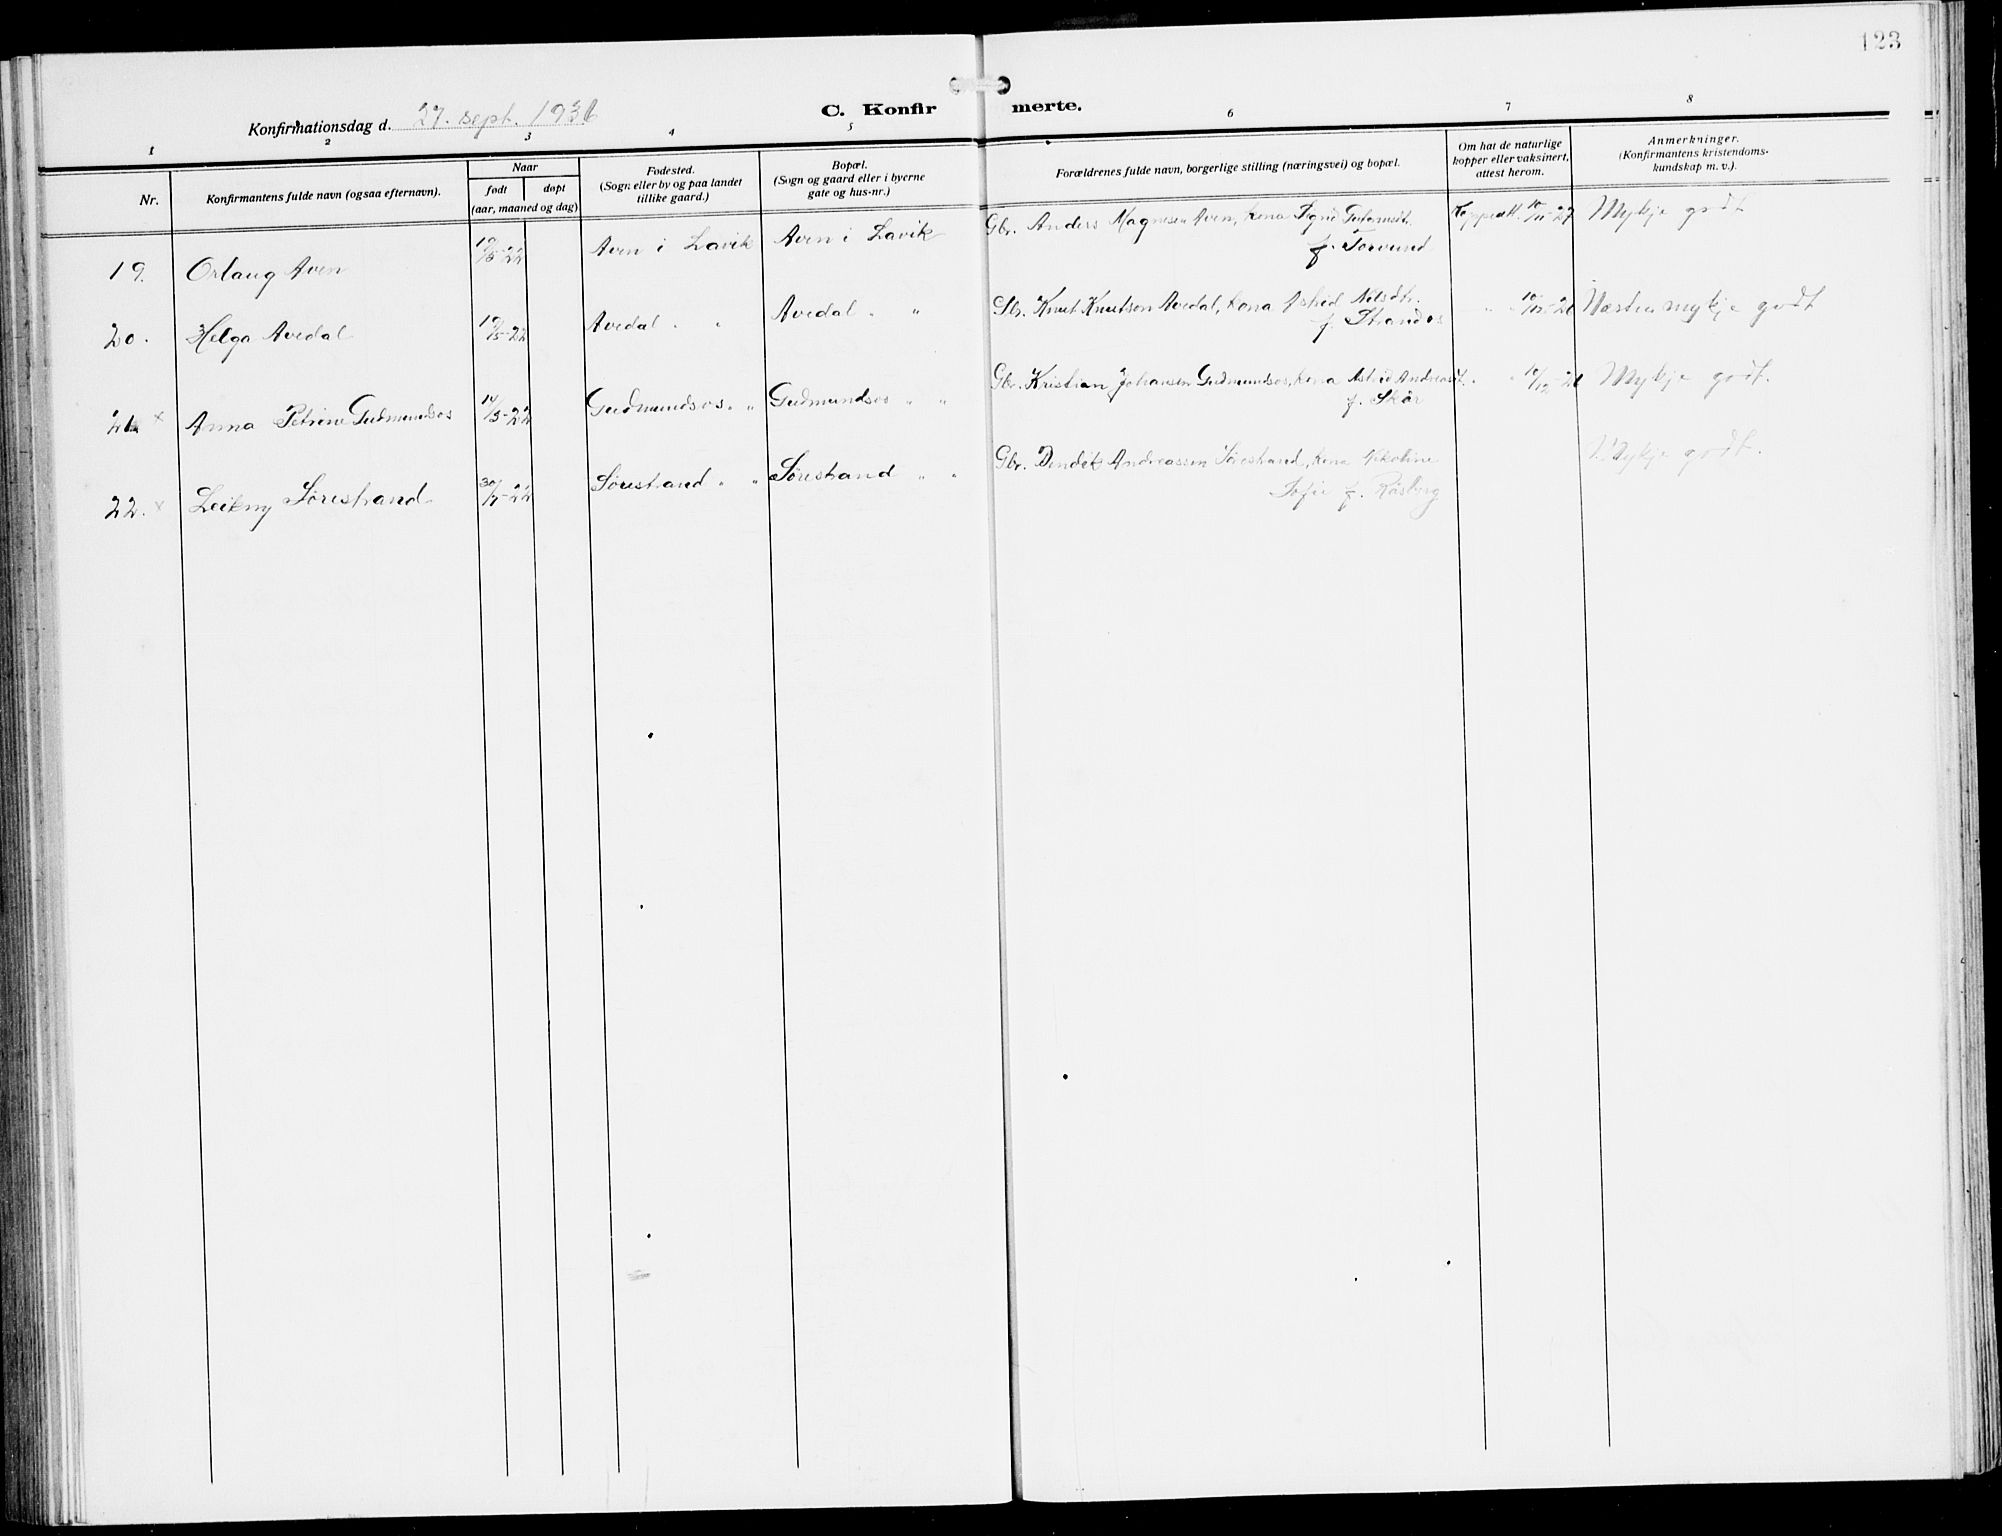 123
C. Konfirmerte.
Konfirmationsdag d. 27. sept. 1936
1 2 3 4 5 6 7 8
Nr.
Konfirmantens fulde navn (ogsaa efternavn).
Naar
født døpt
(aar, maaned og dag)
Fødested.
(Sogn eller by og paa landet
tillike gaard.)
Bopæl.
(Sogn og gaard eller i byerne
gate og hus-nr.)
Forældrenes fulde navn, borgerlige stilling (næringsvei) og bopæl.
Om hat de naturlige
kopper eller vaksinert,
attest herom.
Anmerkninger.
(Konfirmantens kristendoms-
kundskap m. v.).
19. Orlaug Aven Aven i Lavik Aven i Lavik Gbr. Anders Magnesen Aven, kona Sigrid Koppeatt. 10/11-27 Mykje godt
f. Torvund
20. Helga Avedal Avedal " " Avedal " " Gbr. Knut Knutson Avedal, kona Astrid Nilsdtr. " " Næsten mykje godt
f. Strandos
21. x Anna Petrine Gudmundsos 14/5-22 Gudmundsos " " Gudmundsos " " Gbr. Kristian Johansen Gudmundsos, kona Astrid Andreasdt. " " Mykje godt.
f. Skår
22. x Leikny Sørestrand Sørestrand " " Sørestrand " " Gbr. Andreassen Sørestrand, kona Nikoline Mykje godt.
Sofie f. Råsberg